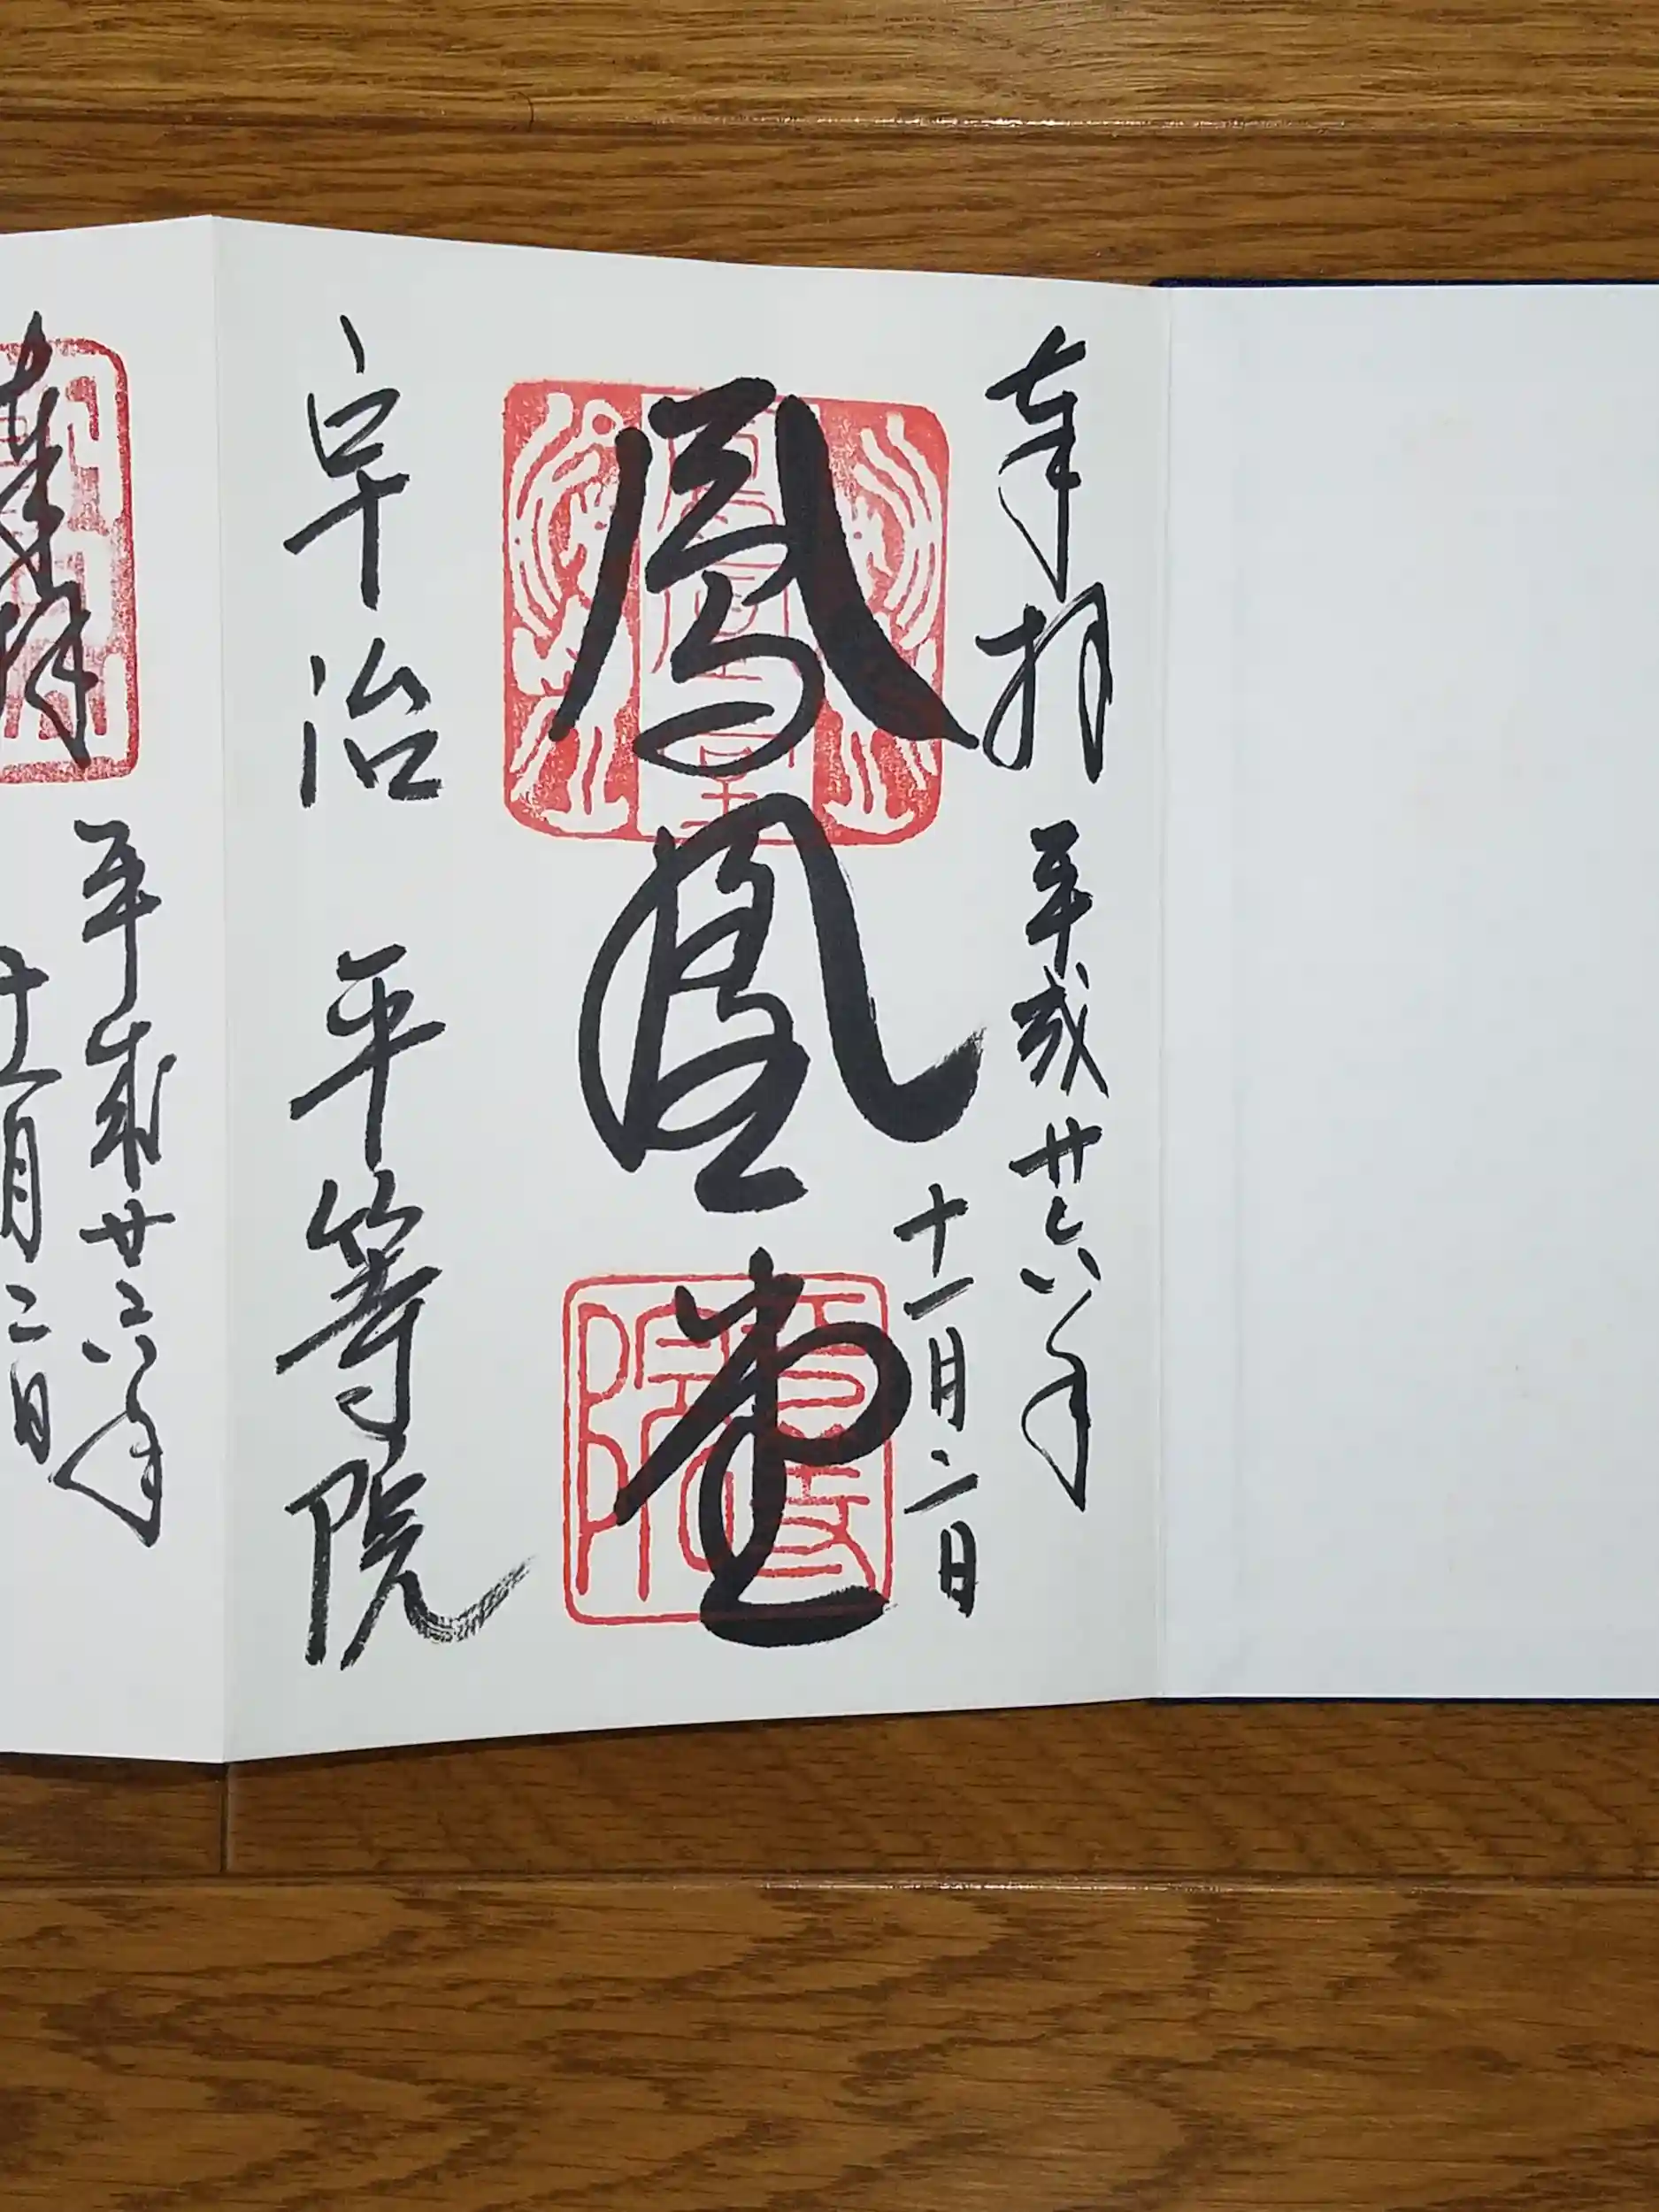 奉拝 平成廿六年
十一月二日
鳳凰堂
宇治 平等院
奉拝
平成廿六年
十一月二日